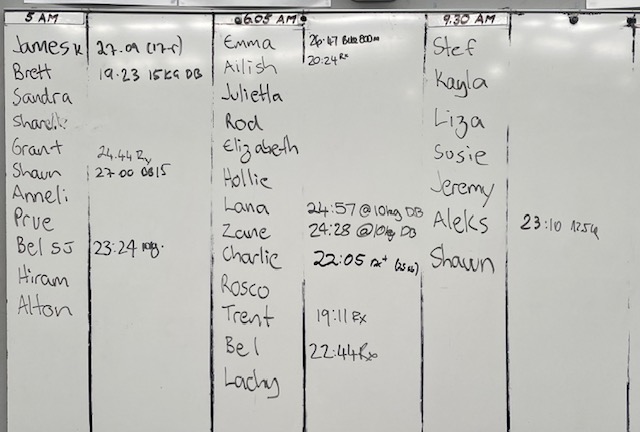 5 AM
James K 27.09 (17.5)
Brett 19.23 15KG DB
Sandra
Grant 24.44 Rx
Shawn 27 00 DB15
Anneli
Prue
Bel SJ 23:24 10kg.
Hiram
Alton
6.05 AM
Emma 26:47 800m
Ailish 20:24 Rx
Julietta
Rod
Elizabeth
Hollie
Lana 24:57 @10kg DB
Zane 24:28 @10kg DB
Charlie 22:05 rx+
Rosco
Trent 19:11 Rx
Bel 22:44 Rx
Lachy
9.30 AM
Stef
Kayla
Liza
Susie
Jeremy
Aleks 23:10
Shawn